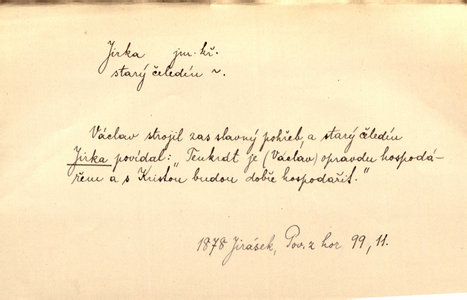 Jirka jm. kř.
starý čeledín ~.
Václav strojil zas slavný pohřeb, a starý čeledín
Jirka povídal: „Tenkrát je (Václav) opravdu hospodá-
řem a s Kristou budou dobře hospodařit."
1878 Jirásek, Pov. z hor 99, 11.